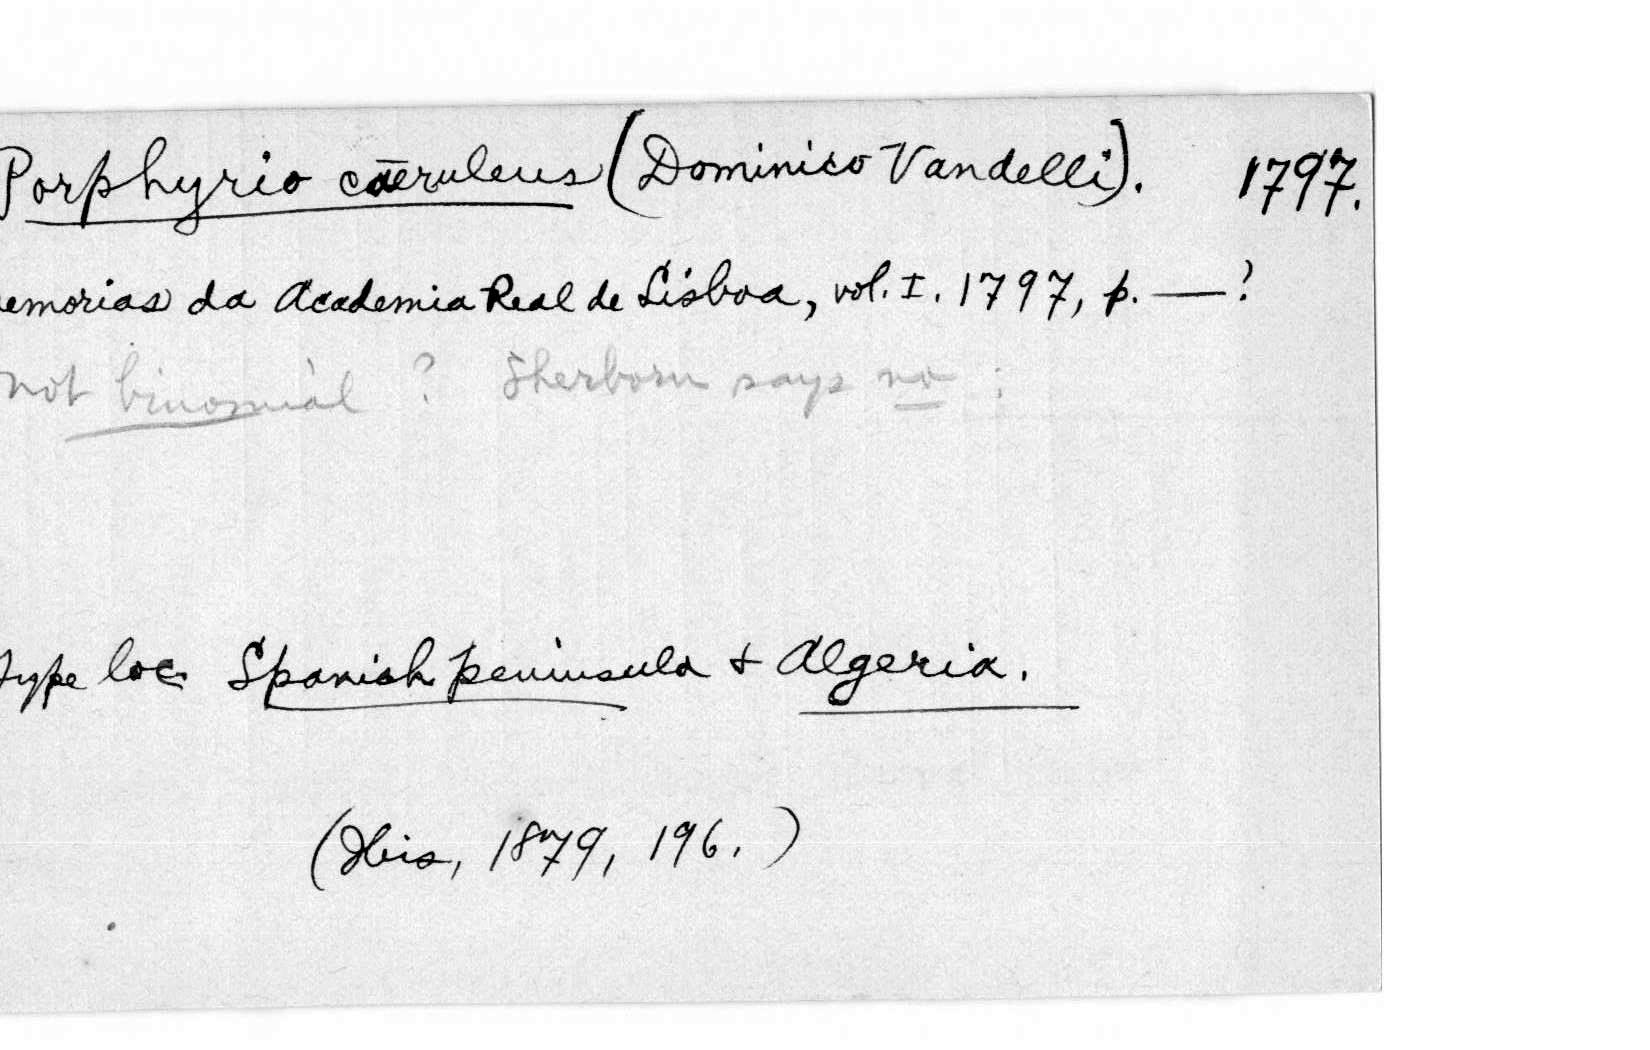 Porphyrio caeruleus (Dominico Vandelli). 1797.
emorias da Academia Real de Lisboa, vol. I. 1797, p. — ?
not binomial ? Sherborn says no :
type loc. Spanish peninsula & Algeria.
(Ibis, 1879, 196.)